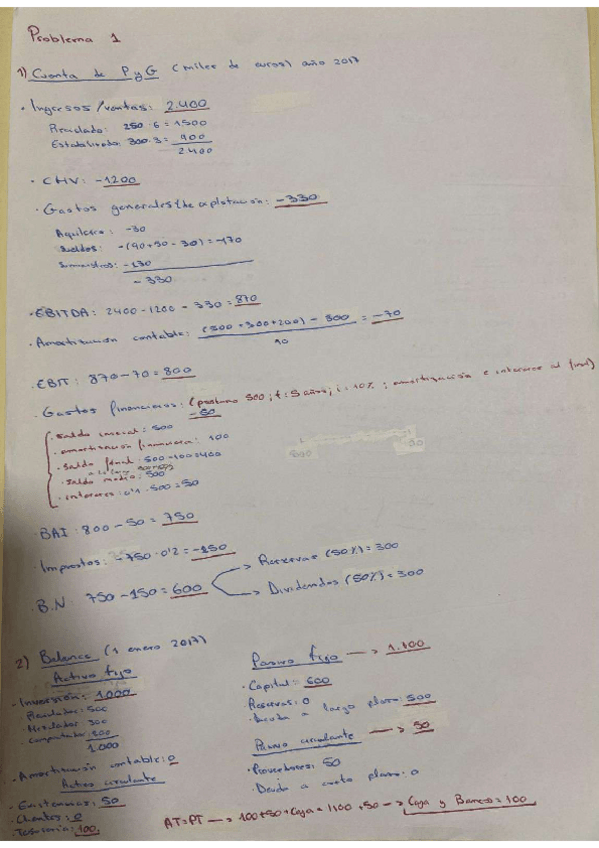 Problema 1
1) Cuenta de PyG (miles de euros) año 2017
· Ingresos/ventas: 2.400
Reciclado: 250 · 6 = 1500
Estabilizado: 300 · 3 = 900
2400
· CMV: -1200
· Gastos generales (de explotación): -330
Alquiler: -30
Sueldos: -(90+50-30) = -170
Suministros: -130
-330
· EBITDA: 2400 - 1200 - 330 = 870
· Amortización contable: (500 + 300 + 200) - 300 = -70
10
· EBIT: 870 - 70 = 800
· Gastos financieros: (préstamo 500; t: 5 años; i = 10%; amortización e intereses al final)
-50
· saldo inicial: 500
· amortización financiera: 100
· saldo final: 500 - 100 = 400
· saldo medio: 500
· intereses: 0'1 · 500 = 50
· BAI: 800 - 50 = 750
· Impuestos: -750 · 0'2 = -150
· B.N: 750 - 150 = 600
Reservas (50%) = 300
Dividendos (50%) = 300
2) Balance (1 enero 2017)
Activo fijo
· Inversión: 1.000
Reciclador: 500
· Mezclador 300
· Compactador: 200
1.000
· Amortización contable: 0
Activo circulante
· Existencias: 50
· Clientes: 0
· Tesorería: 100
Pasivo fijo → 1.100
· Capital: 600
Reservas: 0
· Deuda a largo plazo: 500
Pasivo circulante → 50
· Proveedores: 50
· Deuda a corto plazo: 0
AT = PT → 100 + 50 + Caja = 1100 + 50 → Caja y Bancos = 100